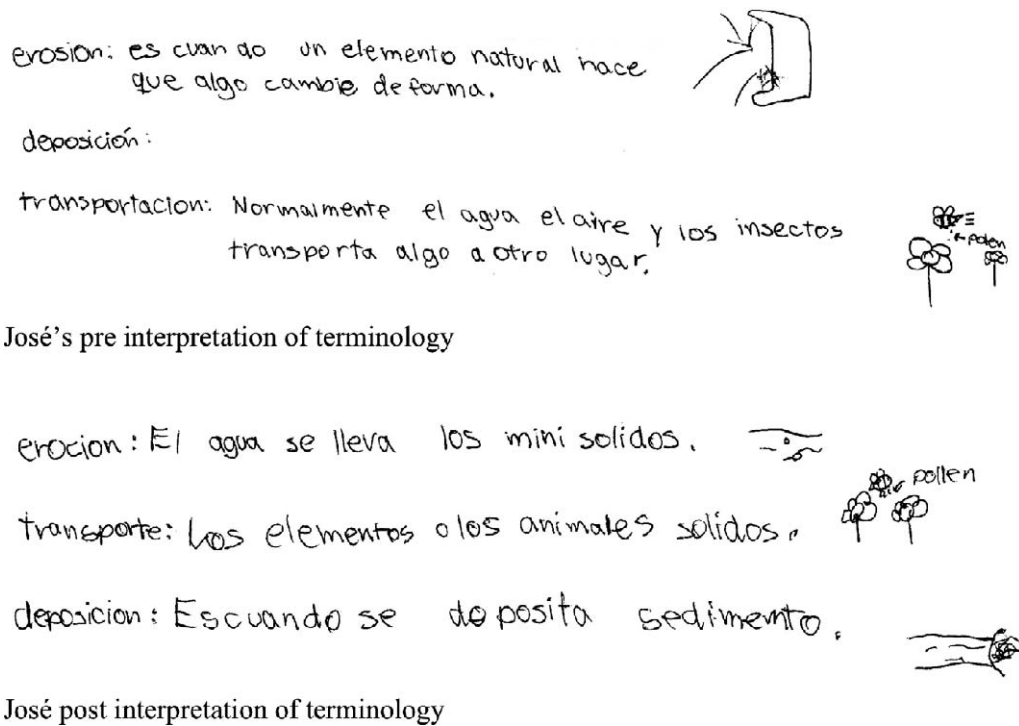 erosion: es cuando un elemento natural hace
que algo cambie de forma.
deposición:
transportacion: Normalmente el agua el aire y los insectos
transporta algo a otro lugar.
polen
José's pre interpretation of terminology
erocion: El agua se lleva los mini solidos.
pollen
transporte: Los elementos o los animales solidos.
deposicion: Es cuando se deposita sedimento.
José post interpretation of terminology